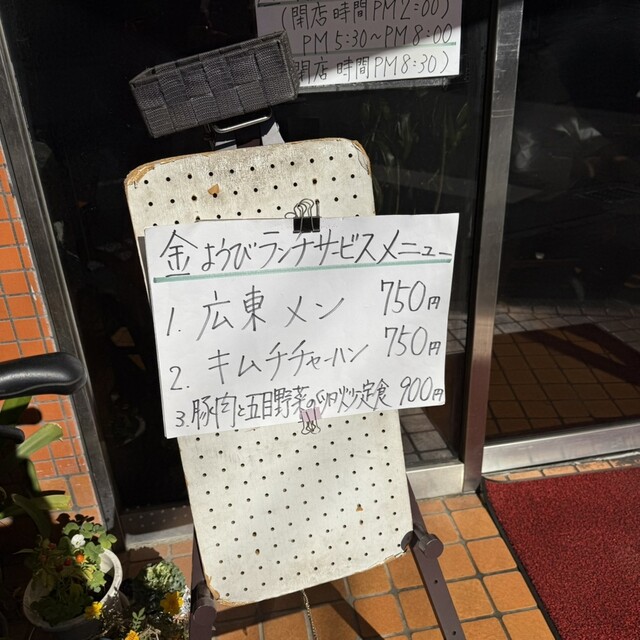 (閉店時間PM2:00)
PM5:30~PM8:00
(閉店時間PM8:30)
金ようびランチサービスメニュー
1. 広東メン 750円
2. キムチチャーハン 750円
3. 豚肉と五目野菜の炒め定食 900円